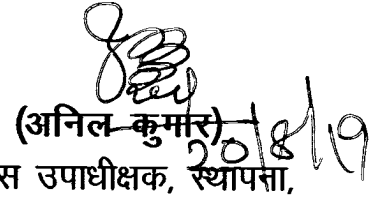 (अनिल कुमार)
20/8/19
स उपाधीक्षक, स्थापना,